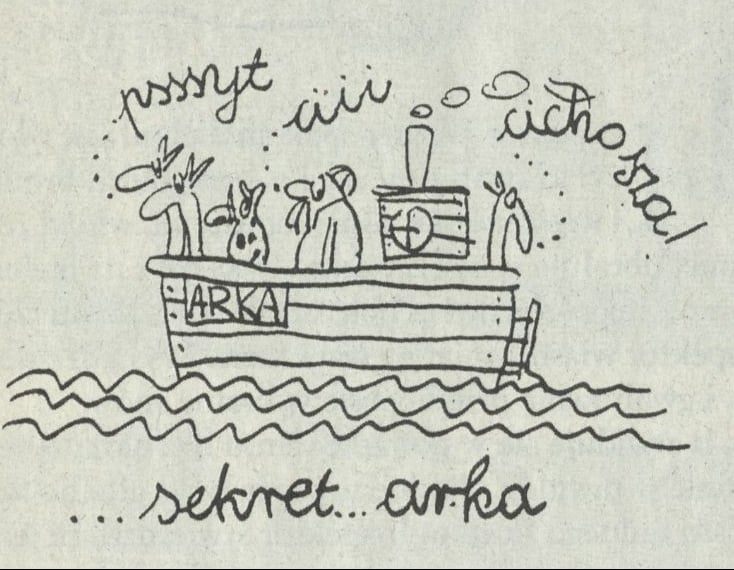 psssyt
ciii
cichosza!
ARKA
...sekret...arka